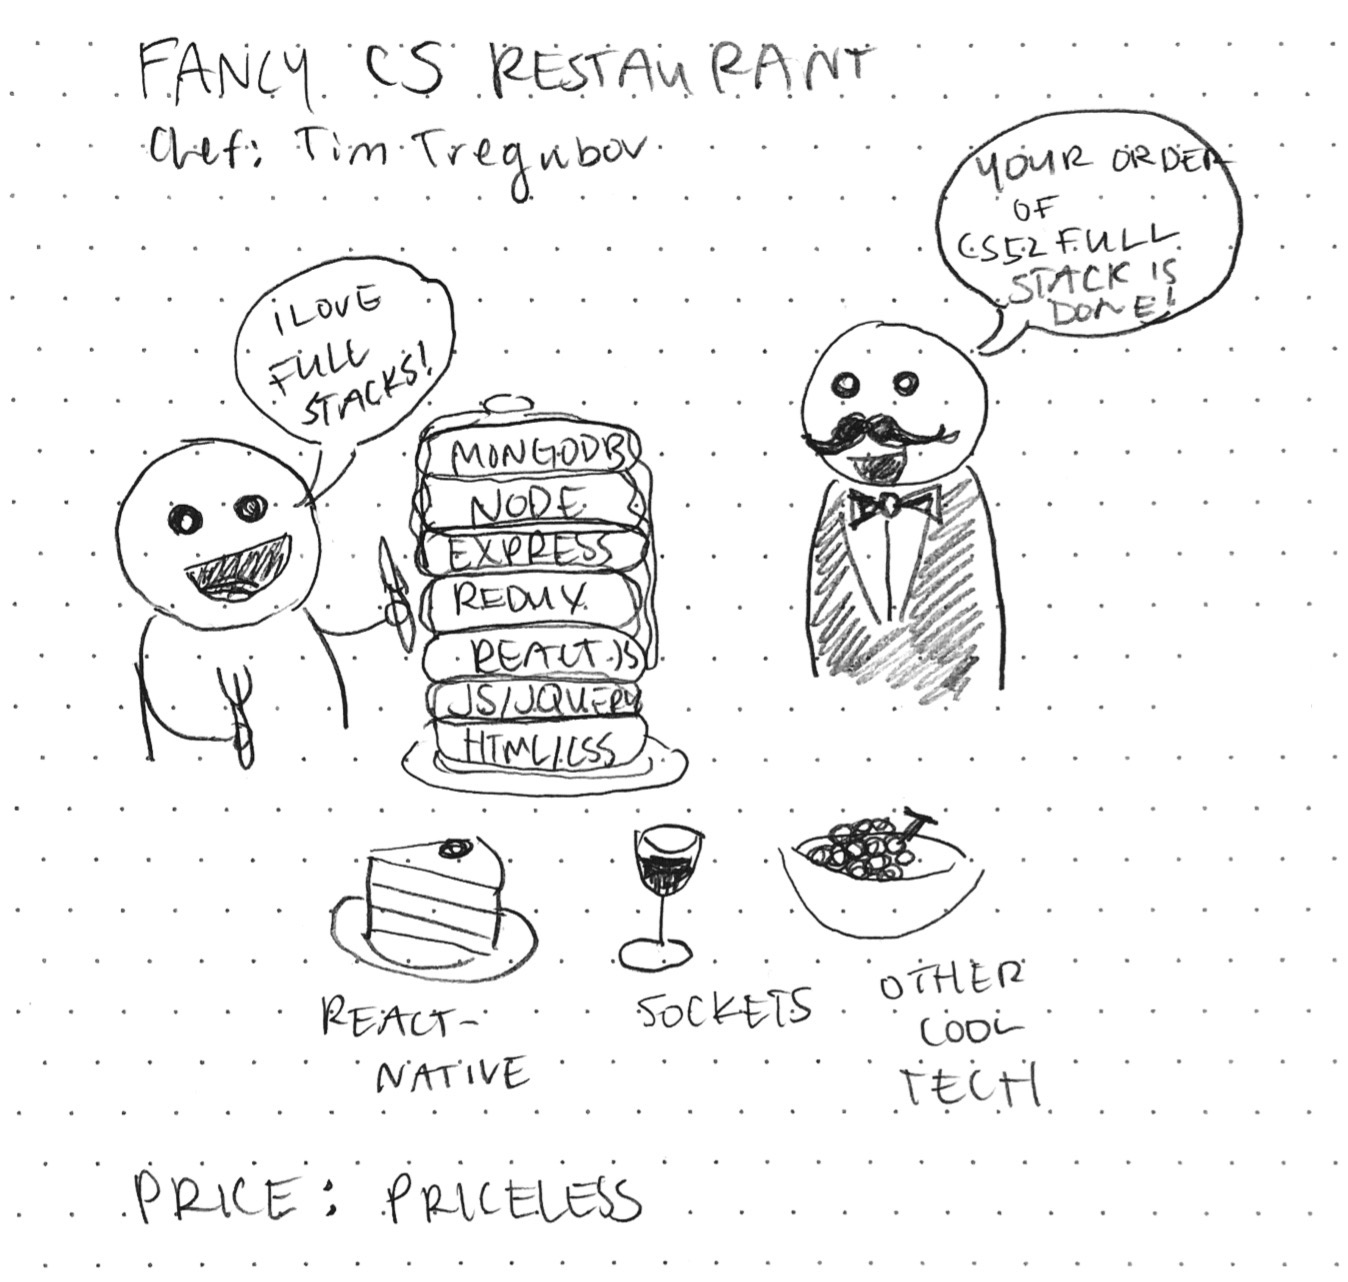 FANCY CS RESTAURANT
Chef: Tim Tregubov
YOUR ORDER
OF
CS52 FULL
STACK IS
DONE!
I LOVE
FULL
STACKS!
MONGODB
NODE
EXPRESS
REDUX
REACT.JS
JS/JQUERY
HTML/CSS
REACT-
NATIVE
SOCKETS
OTHER
COOL
TECH
PRICE: PRICELESS